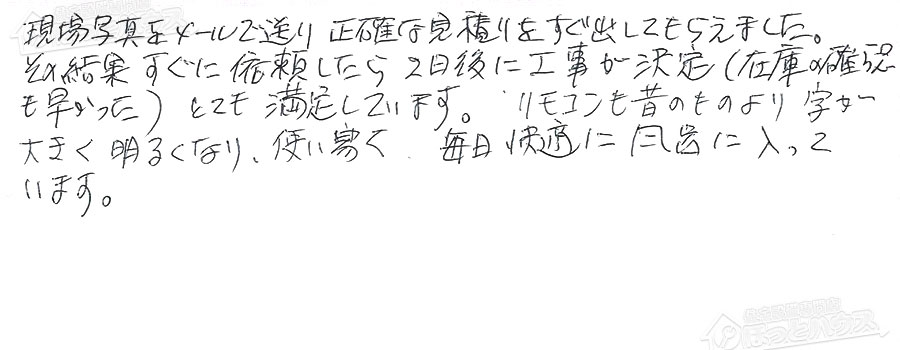 現場写真をメールで送り 正確な見積りをすぐ出してもらえました。
その結果 すぐに依頼したら2日後に工事が決定(在庫の確認
も早かった)とても満足しています。リモコンも昔のものより字が
大きく明るくなり、使い易く 毎日快適に風呂に入って
います。
ほっとハウス